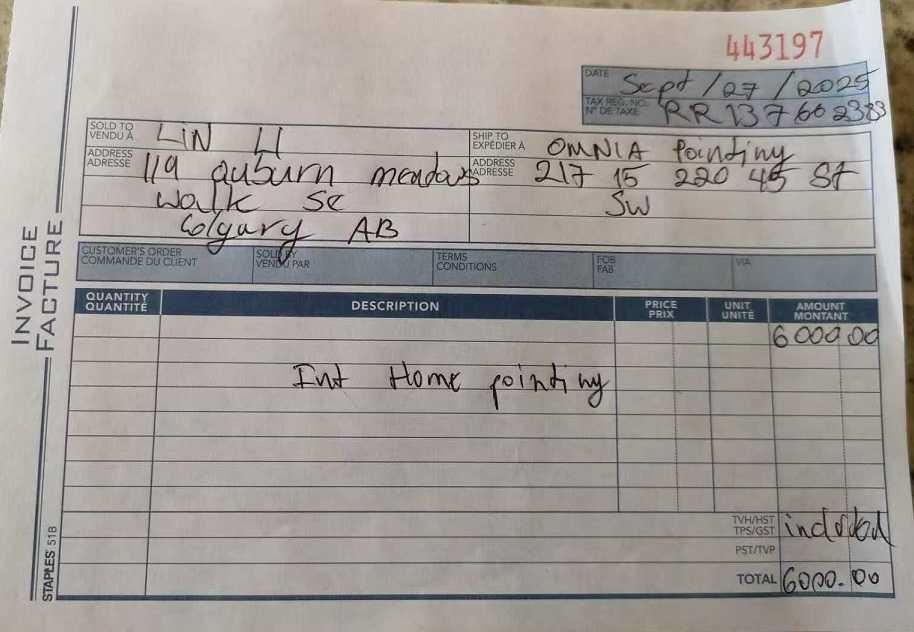 443197
DATE Sept / 27 / 2025
TAX REG. NO. RR 137602383
N° DE TAXE
SOLD TO LIN LI
VENDU À
ADDRESS 119 auburn meadows
ADRESSE
walk SE
Calgary AB
SHIP TO OMNIA Painting
EXPÉDIER À
ADDRESS 217 15 220 45 St
ADRESSE
SW
INVOICE
FACTURE
CUSTOMER'S ORDER SOLD BY TERMS FOB VIA
COMMANDE DU CLIENT VENDU PAR CONDITIONS FAB
QUANTITY DESCRIPTION PRICE UNIT AMOUNT
QUANTITÉ PRIX UNITÉ MONTANT
6000.00
Int Home painting
TVH/HST included
TPS/GST
PST/TVP
TOTAL 6000.00
STAPLES 51B